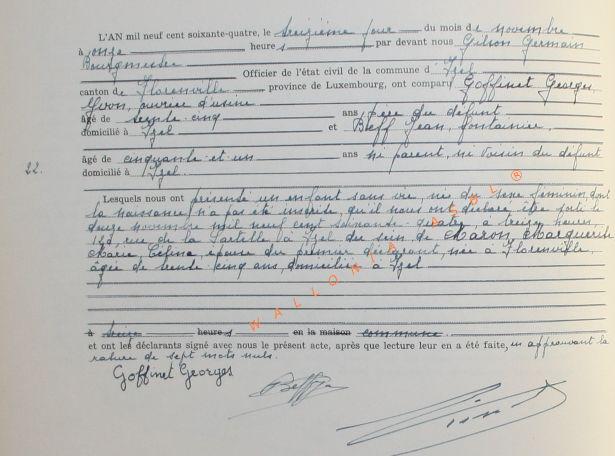 L'AN mil neuf cent soixante-quatre, le treizième jour du mois de novembre
à onze heures par devant nous Gilson Germain
Bourgmestre
Officier de l'état civil de la commune d'Izel
canton de Florenville province de Luxembourg, ont comparu Goffinet Georges,
Yvon, ouvrier d'usine
âgé de trente cinq ans, père du défunt
domicilié à Izel et Bleff Jean, fontainier,
22. âgé de cinquante et un ans ni parent, ni voisin du défunt
domicilié à Izel.
Lesquels nous ont présenté un enfant sans vie, née du sexe féminin, dont
la naissance n'a pas été inscrite, qu'il nous ont déclaré être sorti le
douze novembre mil neuf cent soixante quatre, à treize heures,
rue de la à Izel du sein de Maron, Marguerite
Marie, Célina, épouse du premier déclarant, née à Florenville,
âgée de trente cinq ans, domiciliée à Izel
à heures en la maison commune.
et ont les déclarants signé avec nous le présent acte, après que lecture leur en a été faite, en approuvant la
rature de sept mots nuls.
Goffinet Georges
WALLONIA ASBL ®